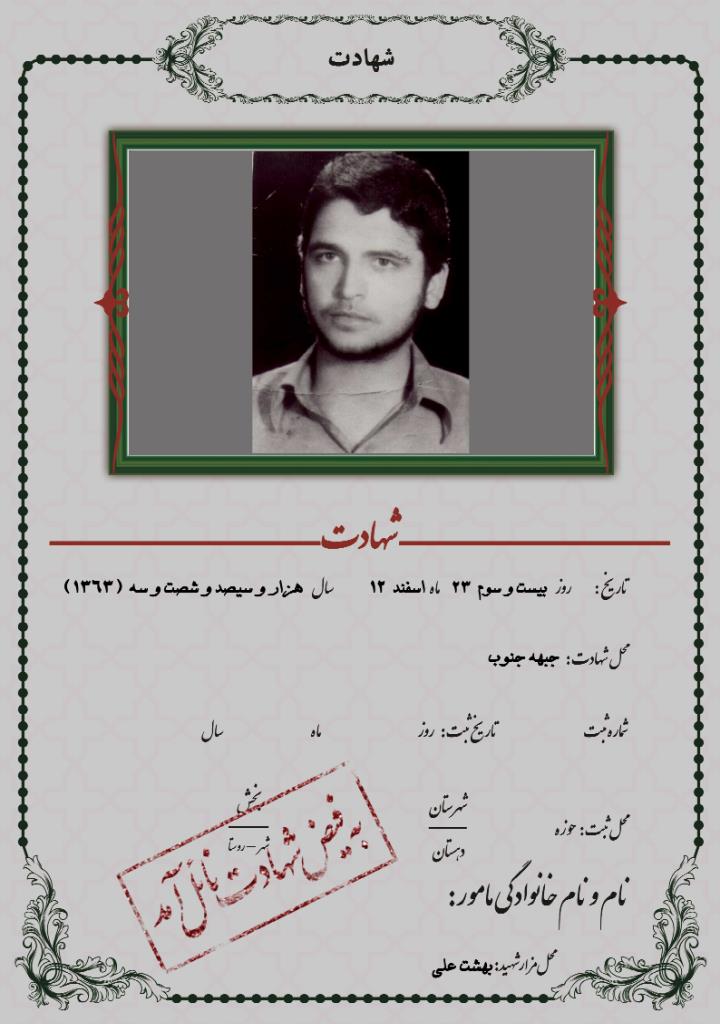 شهادت
شهادت
تاریخ: روز بیست و سوم ۲۳ ماه اسفند ۱۲ سال هزار و سیصد و شصت و سه (۱۳۶۳)
محل شهادت: جبهه جنوب
شماره ثبت تاریخ ثبت: روز ماه سال
محل ثبت: حوزه شهرستان بخش
دهستان شهر – روستا
به فیض شهادت نائل آمد
نام و نام خانوادگی مامور:
محل مزار شهید: بهشت علی